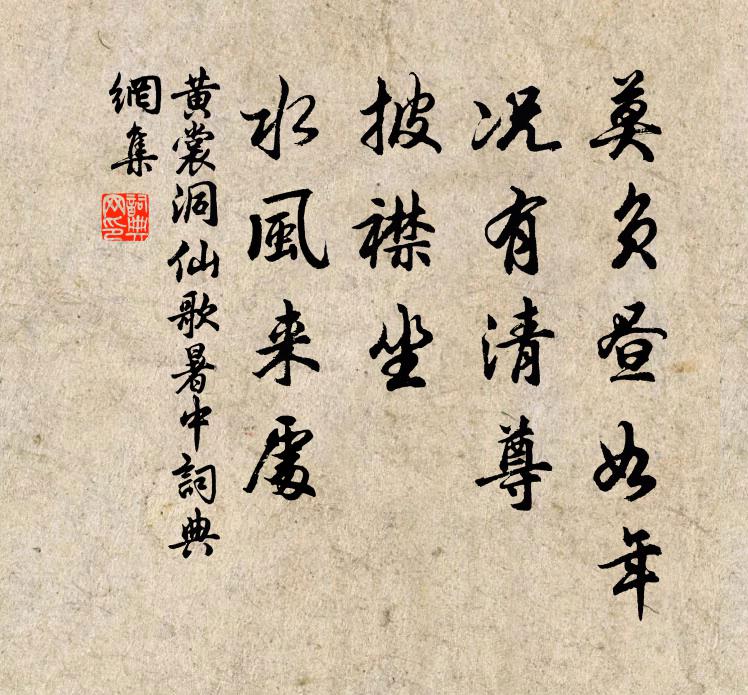 莫負昼如年
况有清尊
披襟坐
水風来處
黄裳洞仙歌暑中詞典
網集
詞典
网印